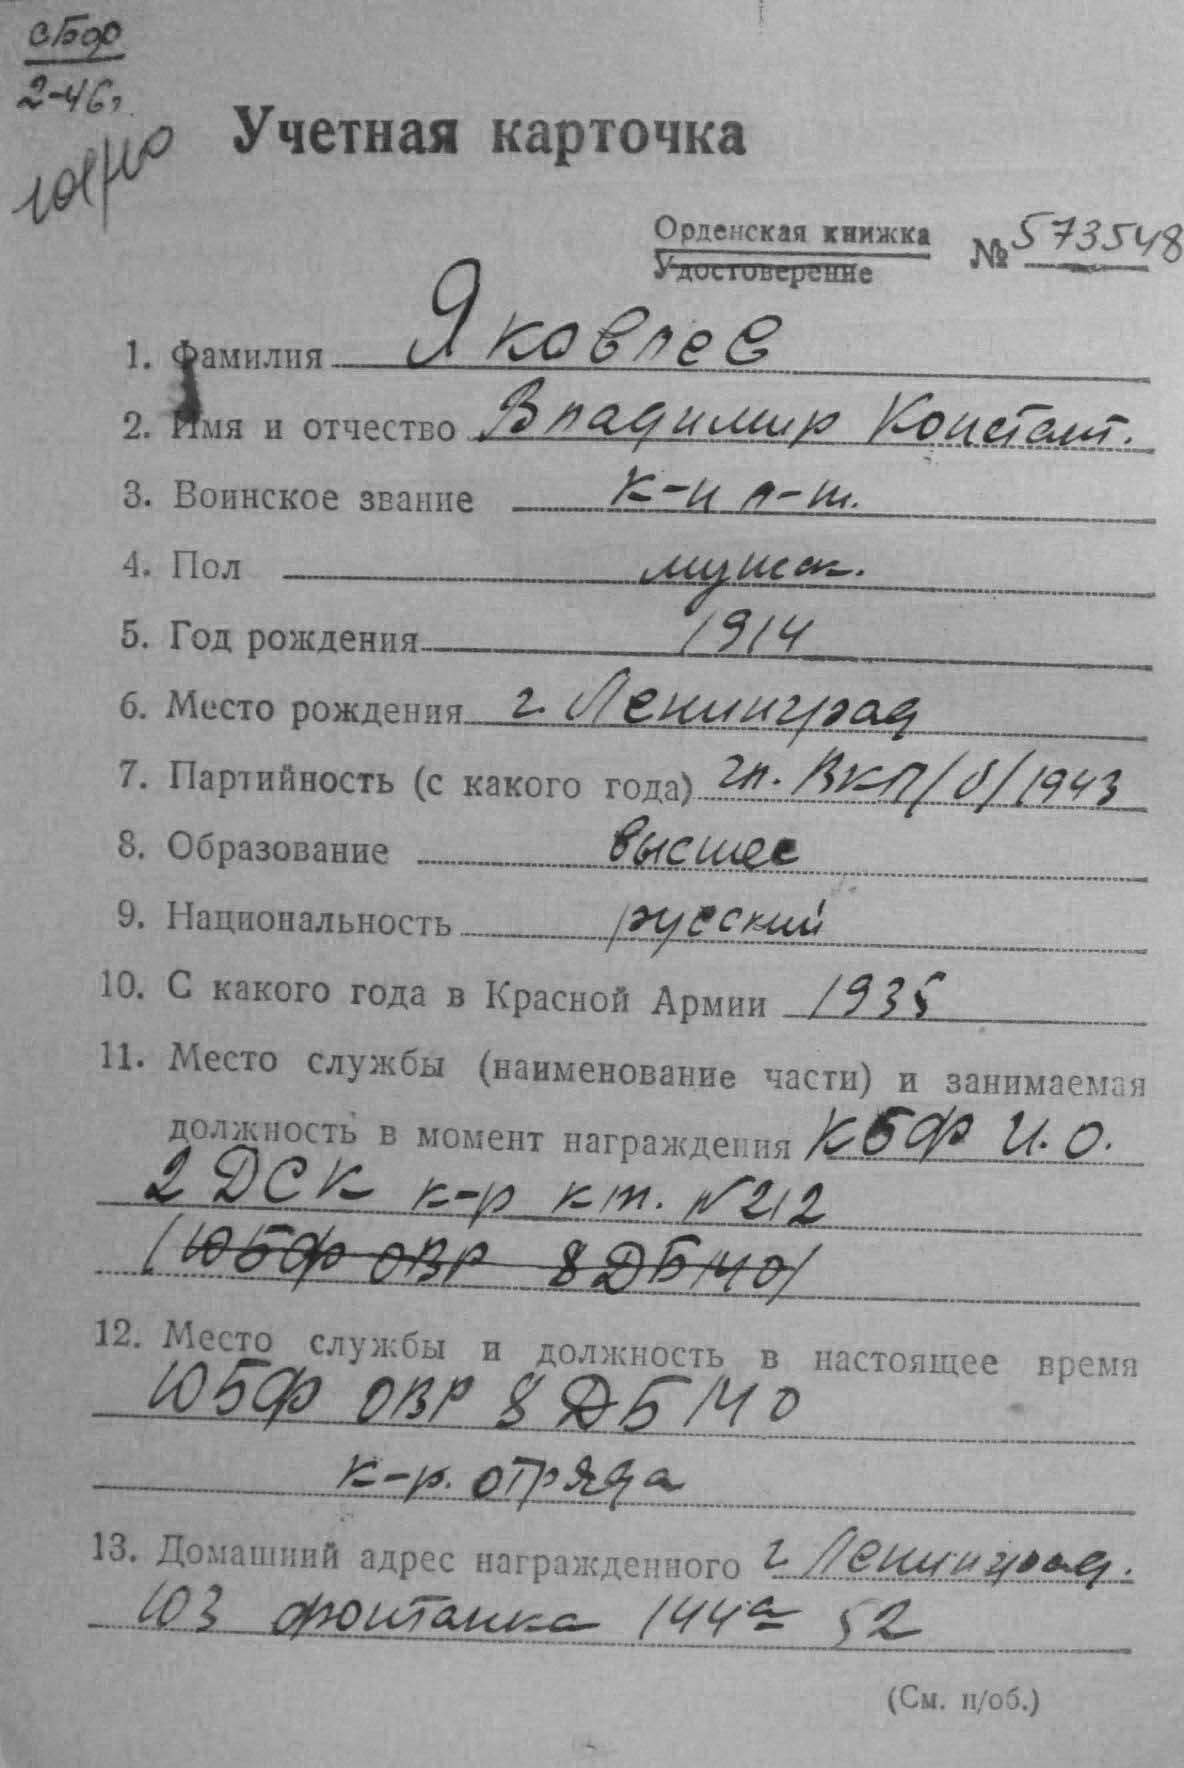 сБФ
2-46г.
Учетная карточка
Орденская книжка
Удостоверение
№ 573548
1. Фамилия Яковлев
2. Имя и отчество Владимир Констант.
3. Воинское звание к-н л-т.
4. Пол мужск.
5. Год рождения 1914
6. Место рождения г. Ленинград
7. Партийность (с какого года) чл. ВКП/б/1943
8. Образование высшее
9. Национальность русский
10. С какого года в Красной Армии 1935
11. Место службы (наименование части) и занимаемая
должность в момент награждения КБФ И.О.
2 ДСК к-р кт. №212
(ЮБФ ОВР 8ДБМО)
12. Место службы и должность в настоящее время
ЮБФ ОВР 8 ДБМО
к-р. отряда
13. Домашний адрес награжденного г. Ленинград.
103 Фонтанка 144а 52
(См. н/об.)